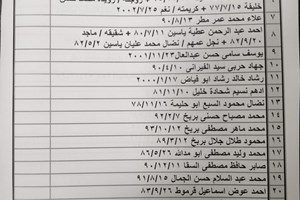 خليفة / ٧٧/٧/١٥ + كريمته / نغم ٢٠٠٢/٧/٢٥
٧ علاء محمد عمر مطر ٩٠/٨/١٣
٨ احمد عبد الرحمن عطية ياسين ٨٠/٧/١١ + شقيقه / ماجد
٨٢/٩/٢٠ + نجل عمهم / نضال محمد عليان ياسين ٨٢/٥/٢
٩ يوسف سامي حسن عبدالعال ٢٠٠١/١١/٢٣
١٠ جهاد حربي سيد الفيراني ٩٠/٤/١٠
١١ رشاد خالد رشاد ابو فياض ٢٠٠٠/١/١٧
١٢ ادهم نسيم شحادة خليل ٨١/١١/١٠
١٣ نضال محمود السبع ابو حليمة ٧٨/١١/١٦
١٤ محمد مصباح حسني بريخ ٩٢/٢
١٥ محمد ماهر مصطفى بريخ ٩٣/١٠/١٢
١٦ محمود طلال جلال بريخ ٨٩/٣/١٢
١٧ محمد وليد مصطفى ابو مدالله ٨٦/٥
١٨ صابر حافظ مصطفى السقا ٩٠/١٢/١١
١٩ محمد عبد السلام حسن الجمال ٩١/٨/١٥
٢٠ احمد عوض اسماعيل قرموط ٨٣/٩/٢٦